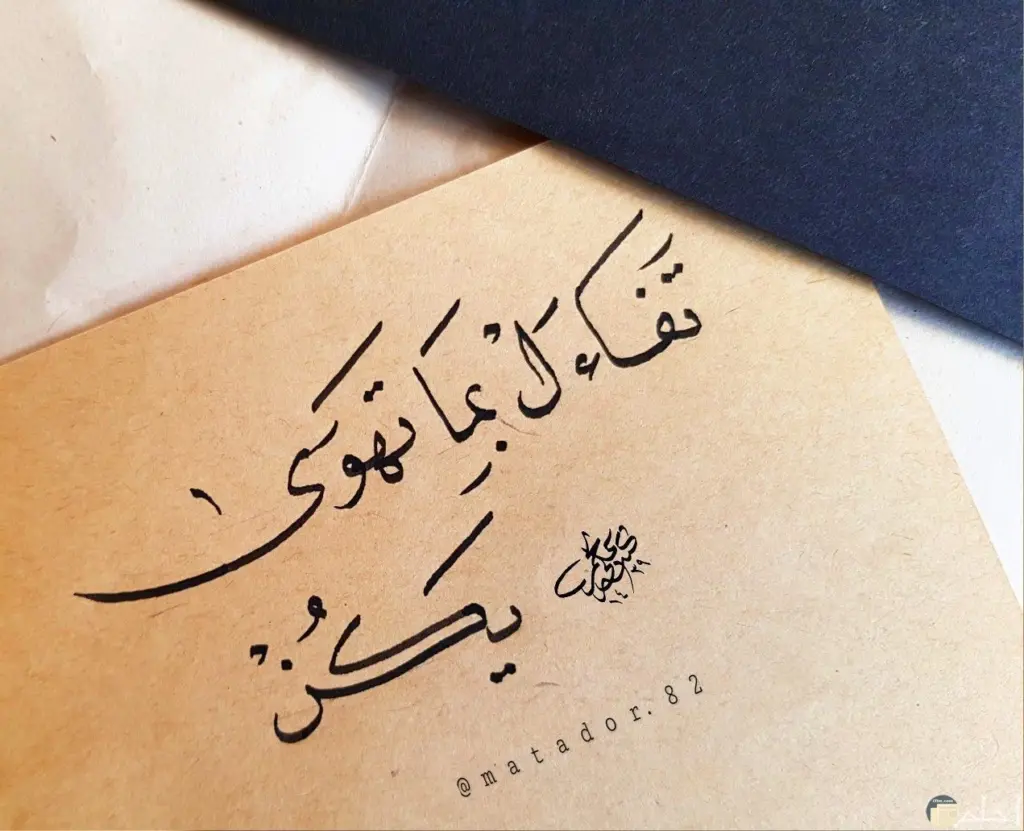 تفاءَلْ بِمَا تهوىٰ
يَكُنْ
@matador.82